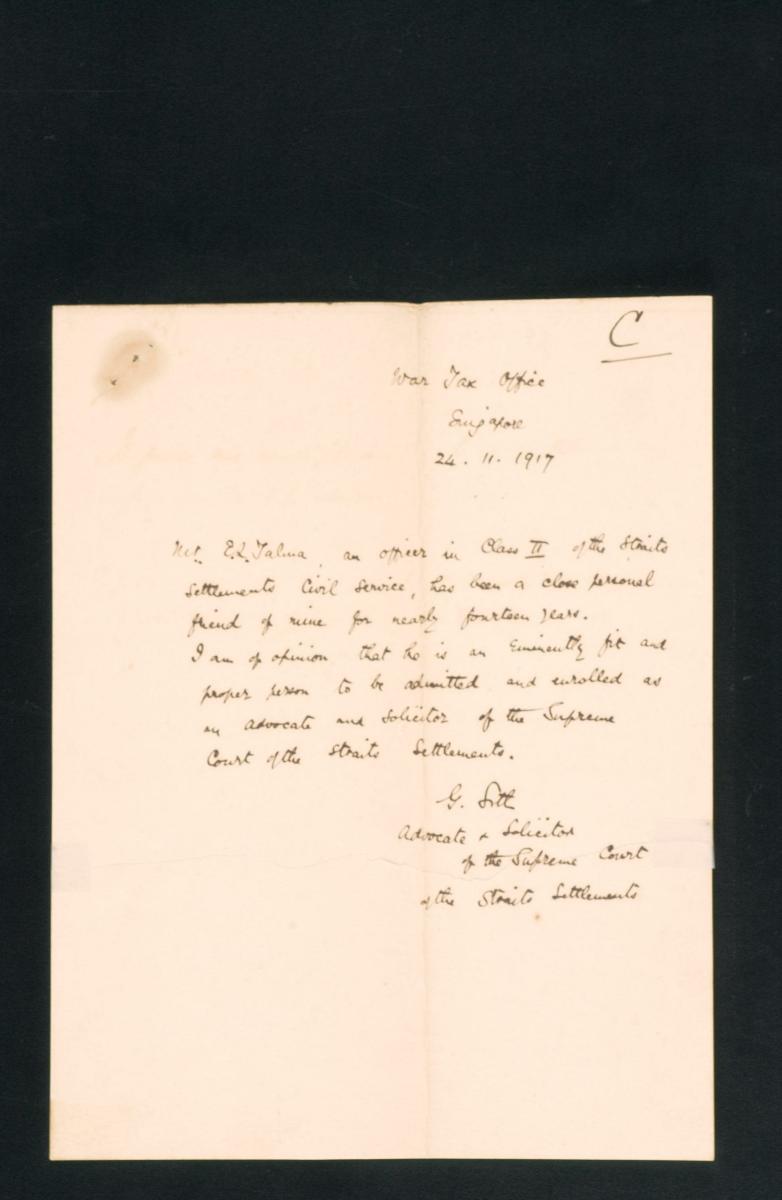 C
War Tax Office
Singapore
24. 11. 1917
Mr. E.L. Talma, an officer in Class II of the Straits
Settlements Civil Service, has been a close personal
friend of mine for nearly fourteen years.
I am of opinion that he is an eminently fit and
proper person to be admitted and enrolled as
an advocate and solicitor of the Supreme
Court of the Straits Settlements.
G.
Advocate & Solicitor
of the Supreme Court
of the Straits Settlements